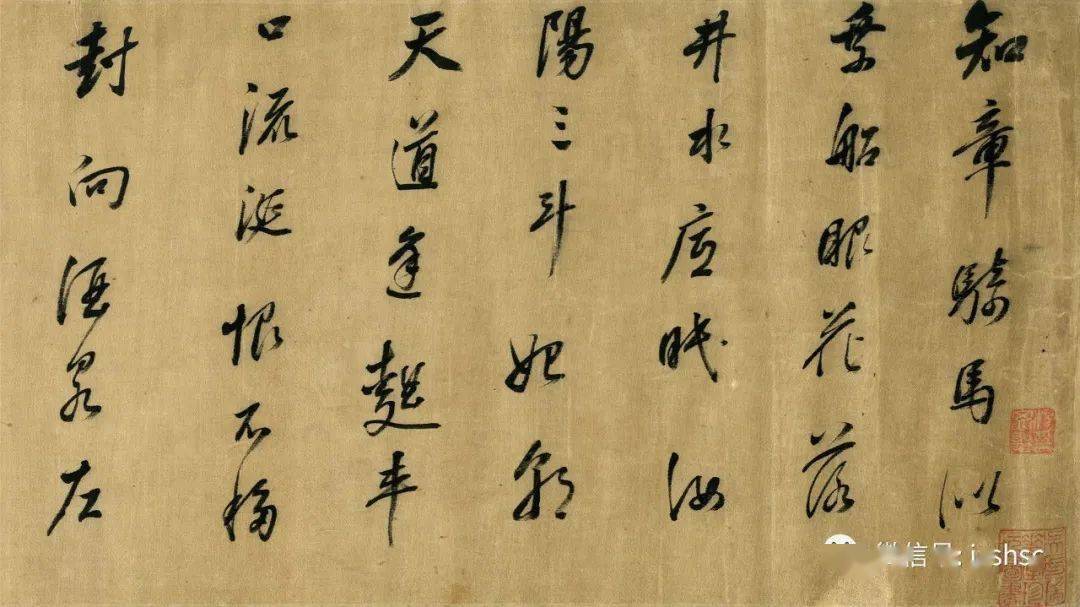 知章騎馬似
乘船眼花落
井水底眠汝
陽三斗始朝
天道逢麴車
口流涎恨不移
封向酒泉左
微信号: